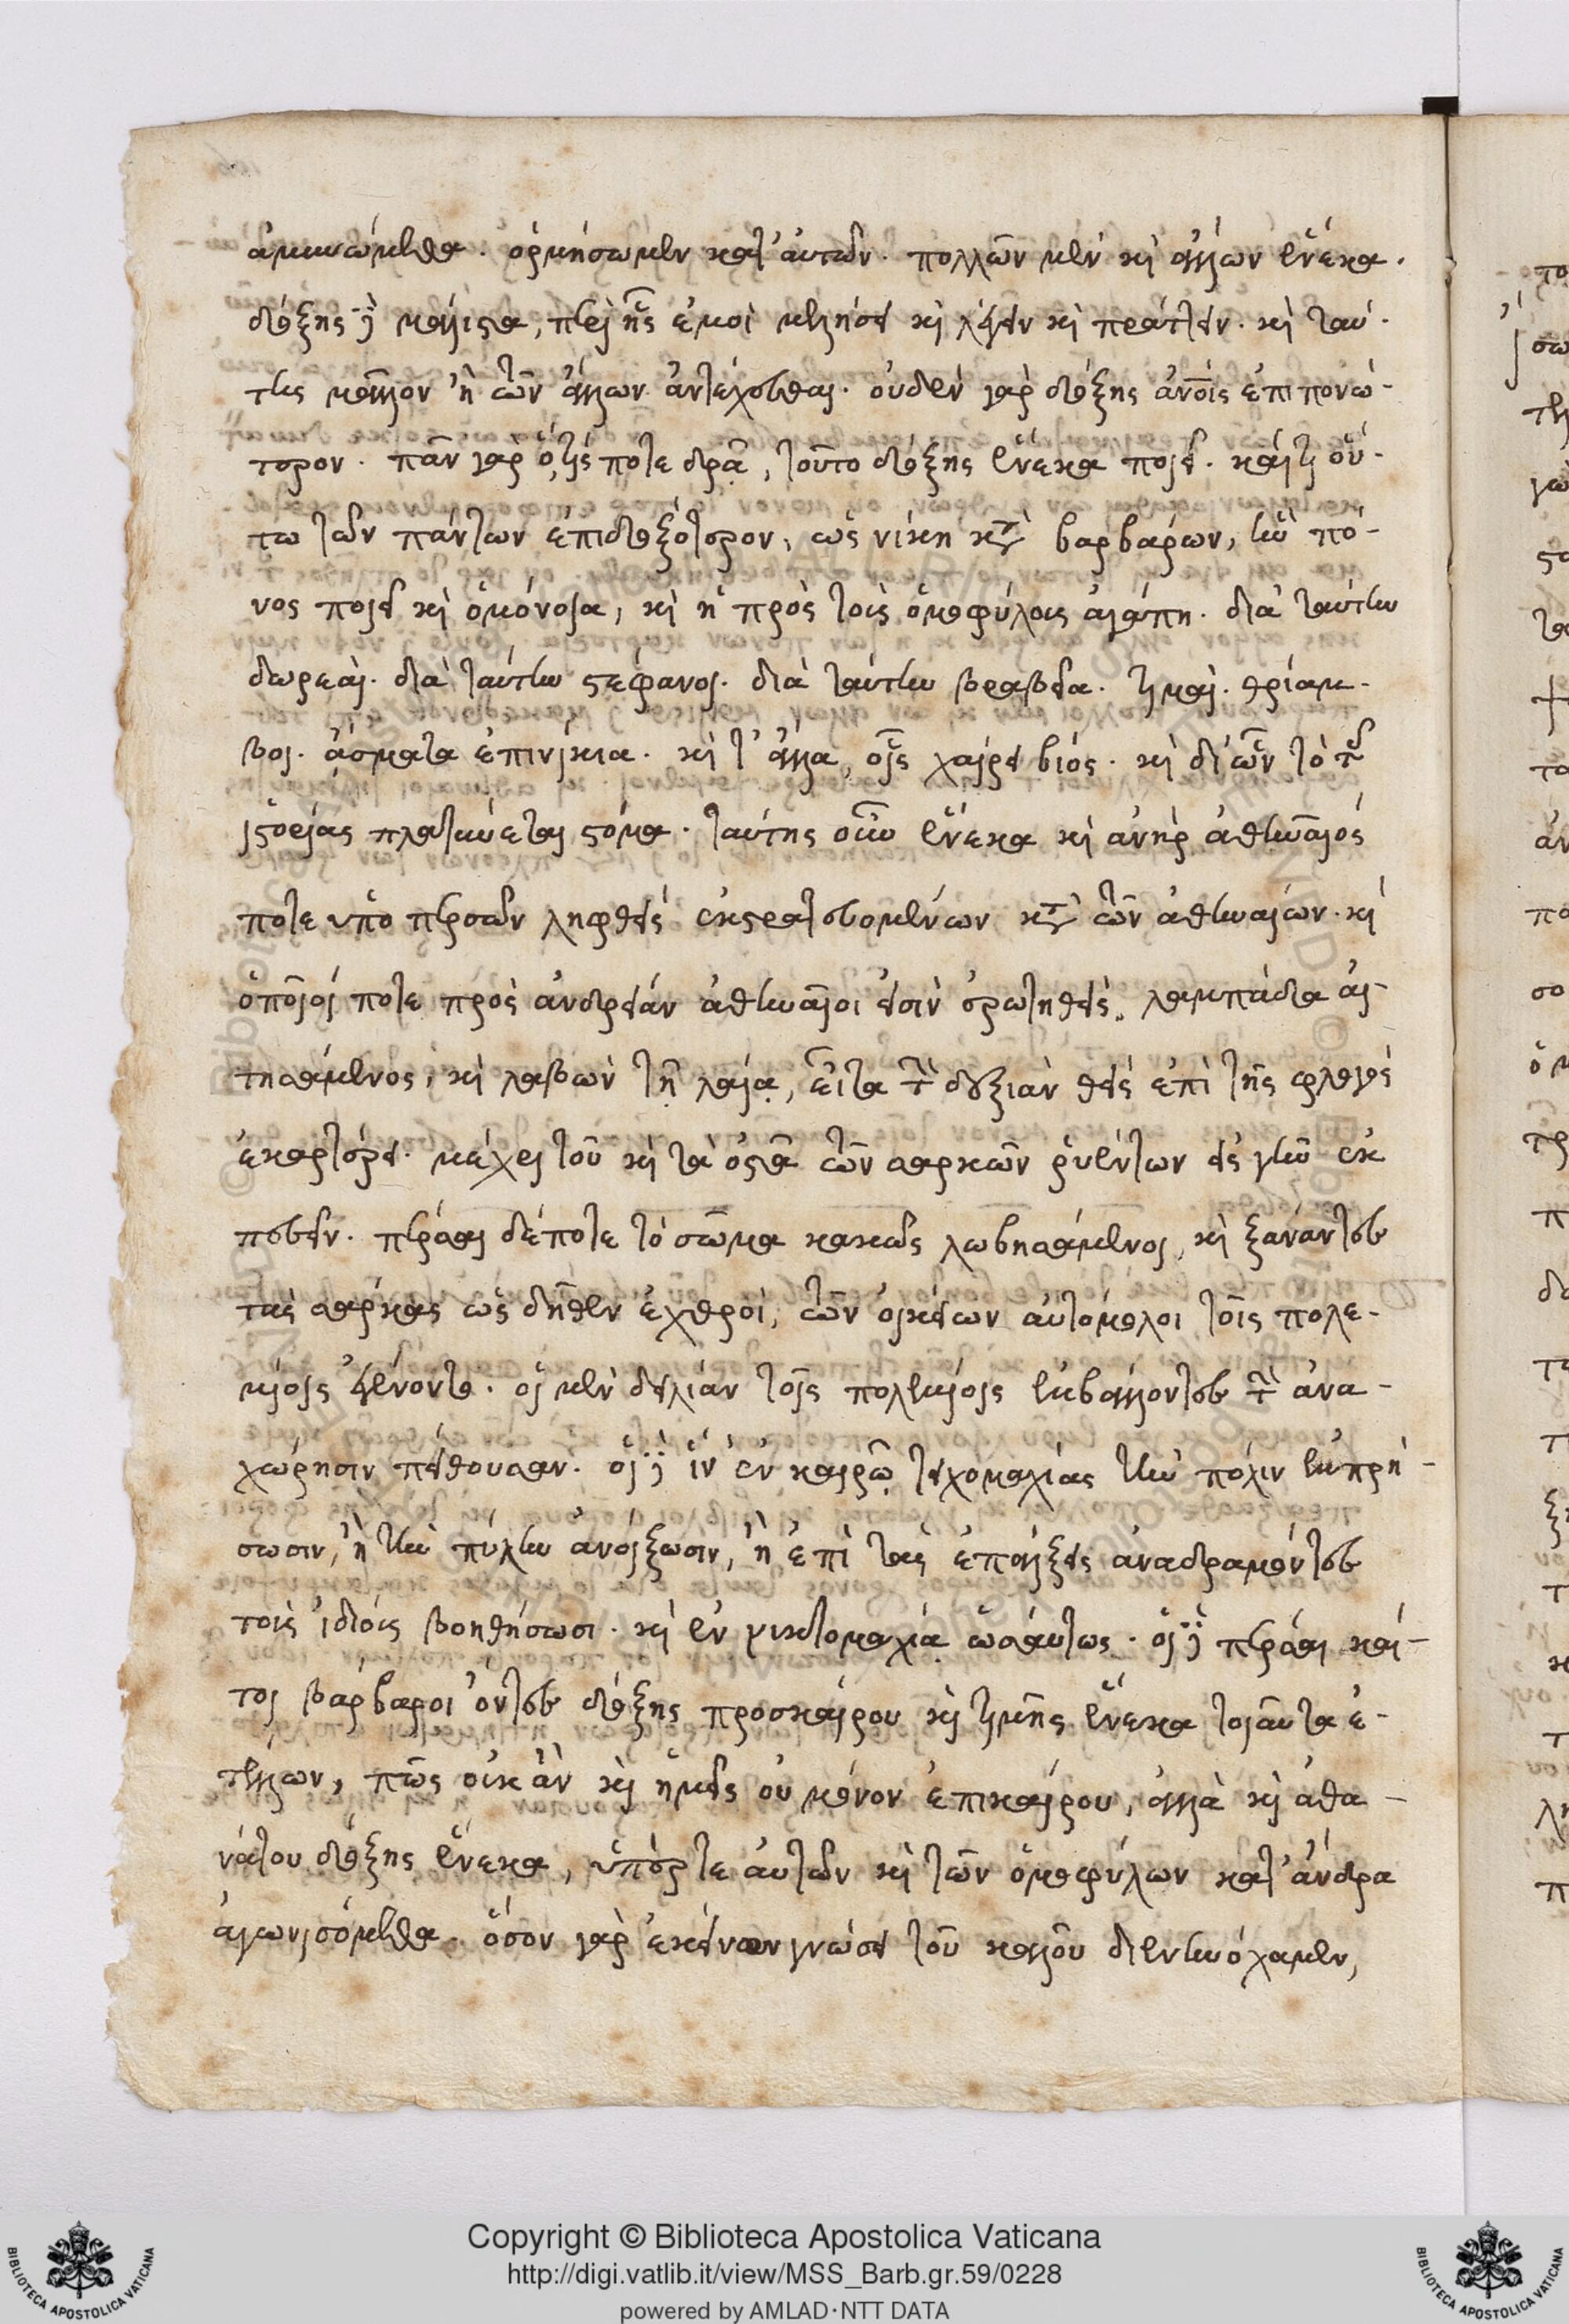 ἀμυνώμεθα. ὁρμήσωμεν κατ' αὐτῶν. πολλῶν μὲν κὶ ἄλλων ἕνεκα.
δόξης δὲ μάλιστα, περὶ ἧς ἐμοὶ μελήσει κὶ λέγειν κὶ πράττειν. κὶ ταύ-
της μᾶλλον ἢ τῶν ἄλλων ἀντέχεσθαι. οὐδὲν γὰρ δόξης ἀνοις ἐπιπονώ-
τερον. πᾶν γὰρ ὅτίς ποτε δρᾷ, τοῦτο δόξης ἕνεκα ποιεῖ. καί τι οὕ-
τω τῶν πάντων ἐπιδοξότερον, ὡς νίκη κατὰ βαρβάρων, ἣν πό-
νος ποιεῖ κὶ ὁμόνοια, κὶ ἡ πρὸς τοὺς ὁμοφύλους ἀγάπη. διὰ ταύτην
δωρεαί. διὰ ταύτην στέφανοι. διὰ ταύτην βραβεῖα. τιμαί. θρίαμ-
βοι. ᾄσματα ἐπινίκια. κὶ τ' ἄλλα, οἷς χαίρει βιός. κὶ δι' ὧν τὸ τῆς
ἱστορίας πλατύνεται στόμα. ταύτης οὖν ἕνεκα κὶ ἀνὴρ ἀθηναῖός
ποτε ὑπὸ περσῶν ληφθεὶς ἐκστρατευομένων κατὰ τῶν ἀθηναίων. κὶ
ὁποῖοί ποτε πρὸς ἀνδρείαν ἀθηναῖοι εἰσὶν ἐρωτηθείς. λαμπάδα αἰ-
τησάμενος, κὶ λαβὼν τῇ λαιᾷ, εἶτα τὴν δεξιὰν θεὶς ἐπὶ τῆς φλογός
ἐκαρτέρει. μέχρι τοῦ κὶ τὰ ὀστᾶ τῶν σαρκῶν ῥυέντων εἰς γῆν ἐκ
πεσεῖν. πέρσαι δέ ποτε τὸ σῶμα κακῶς λωβησάμενοι, κὶ ξάναντες
τὰς σάρκας ὡς δῆθεν ἐχθροί, τῶν οἰκείων αὐτόμολοι τοῖς πολε-
μίοις ἐγένοντο. οἱ μὲν δειλίαν τοῖς πολεμίοις ἐμβάλλοντες τὴν ἀνα-
χώρησιν πείθουσαν. οἱ δὲ ἵν' ἐν καιρῷ τειχομαχίας τὴν πόλιν ἐμπρή-
σωσιν, ἢ τὴν πύλην ἀνοίξωσιν, ἢ ἐπὶ τὰς ἐπάλξεις ἀναδραμόντες
τοῖς ἰδίοις βοηθήσωσι. κὶ ἐν νυκτομαχίᾳ ὡσαύτως. οἱ δὲ πέρσαι καί-
τοι βάρβαροι ὄντες δόξης προσκαίρου κὶ τιμῆς ἕνεκα τοιαῦτα ἐ-
τέλλων, πῶς οὐκ ἂν κὶ ἡμεῖς οὐ μόνον ἐπικαίρου, ἀλλὰ κὶ ἀθα-
νάτου δόξης ἕνεκα, ὑπέρ τε αὐτῶν κὶ τῶν ὁμοφύλων κατ' ἄνδρα
ἀγωνισόμεθα. ὅσον γὰρ ἐκείνων γνώσει τοῦ καλοῦ διενηνόχαμεν,
Copyright © Biblioteca Apostolica Vaticana
http://digi.vatlib.it/view/MSS_Barb.gr.59/0228
powered by AMLAD·NTT DATA
BIBLIOTECA APOSTOLICA VATICANA
BIBLIOTECA APOSTOLICA VATICANA